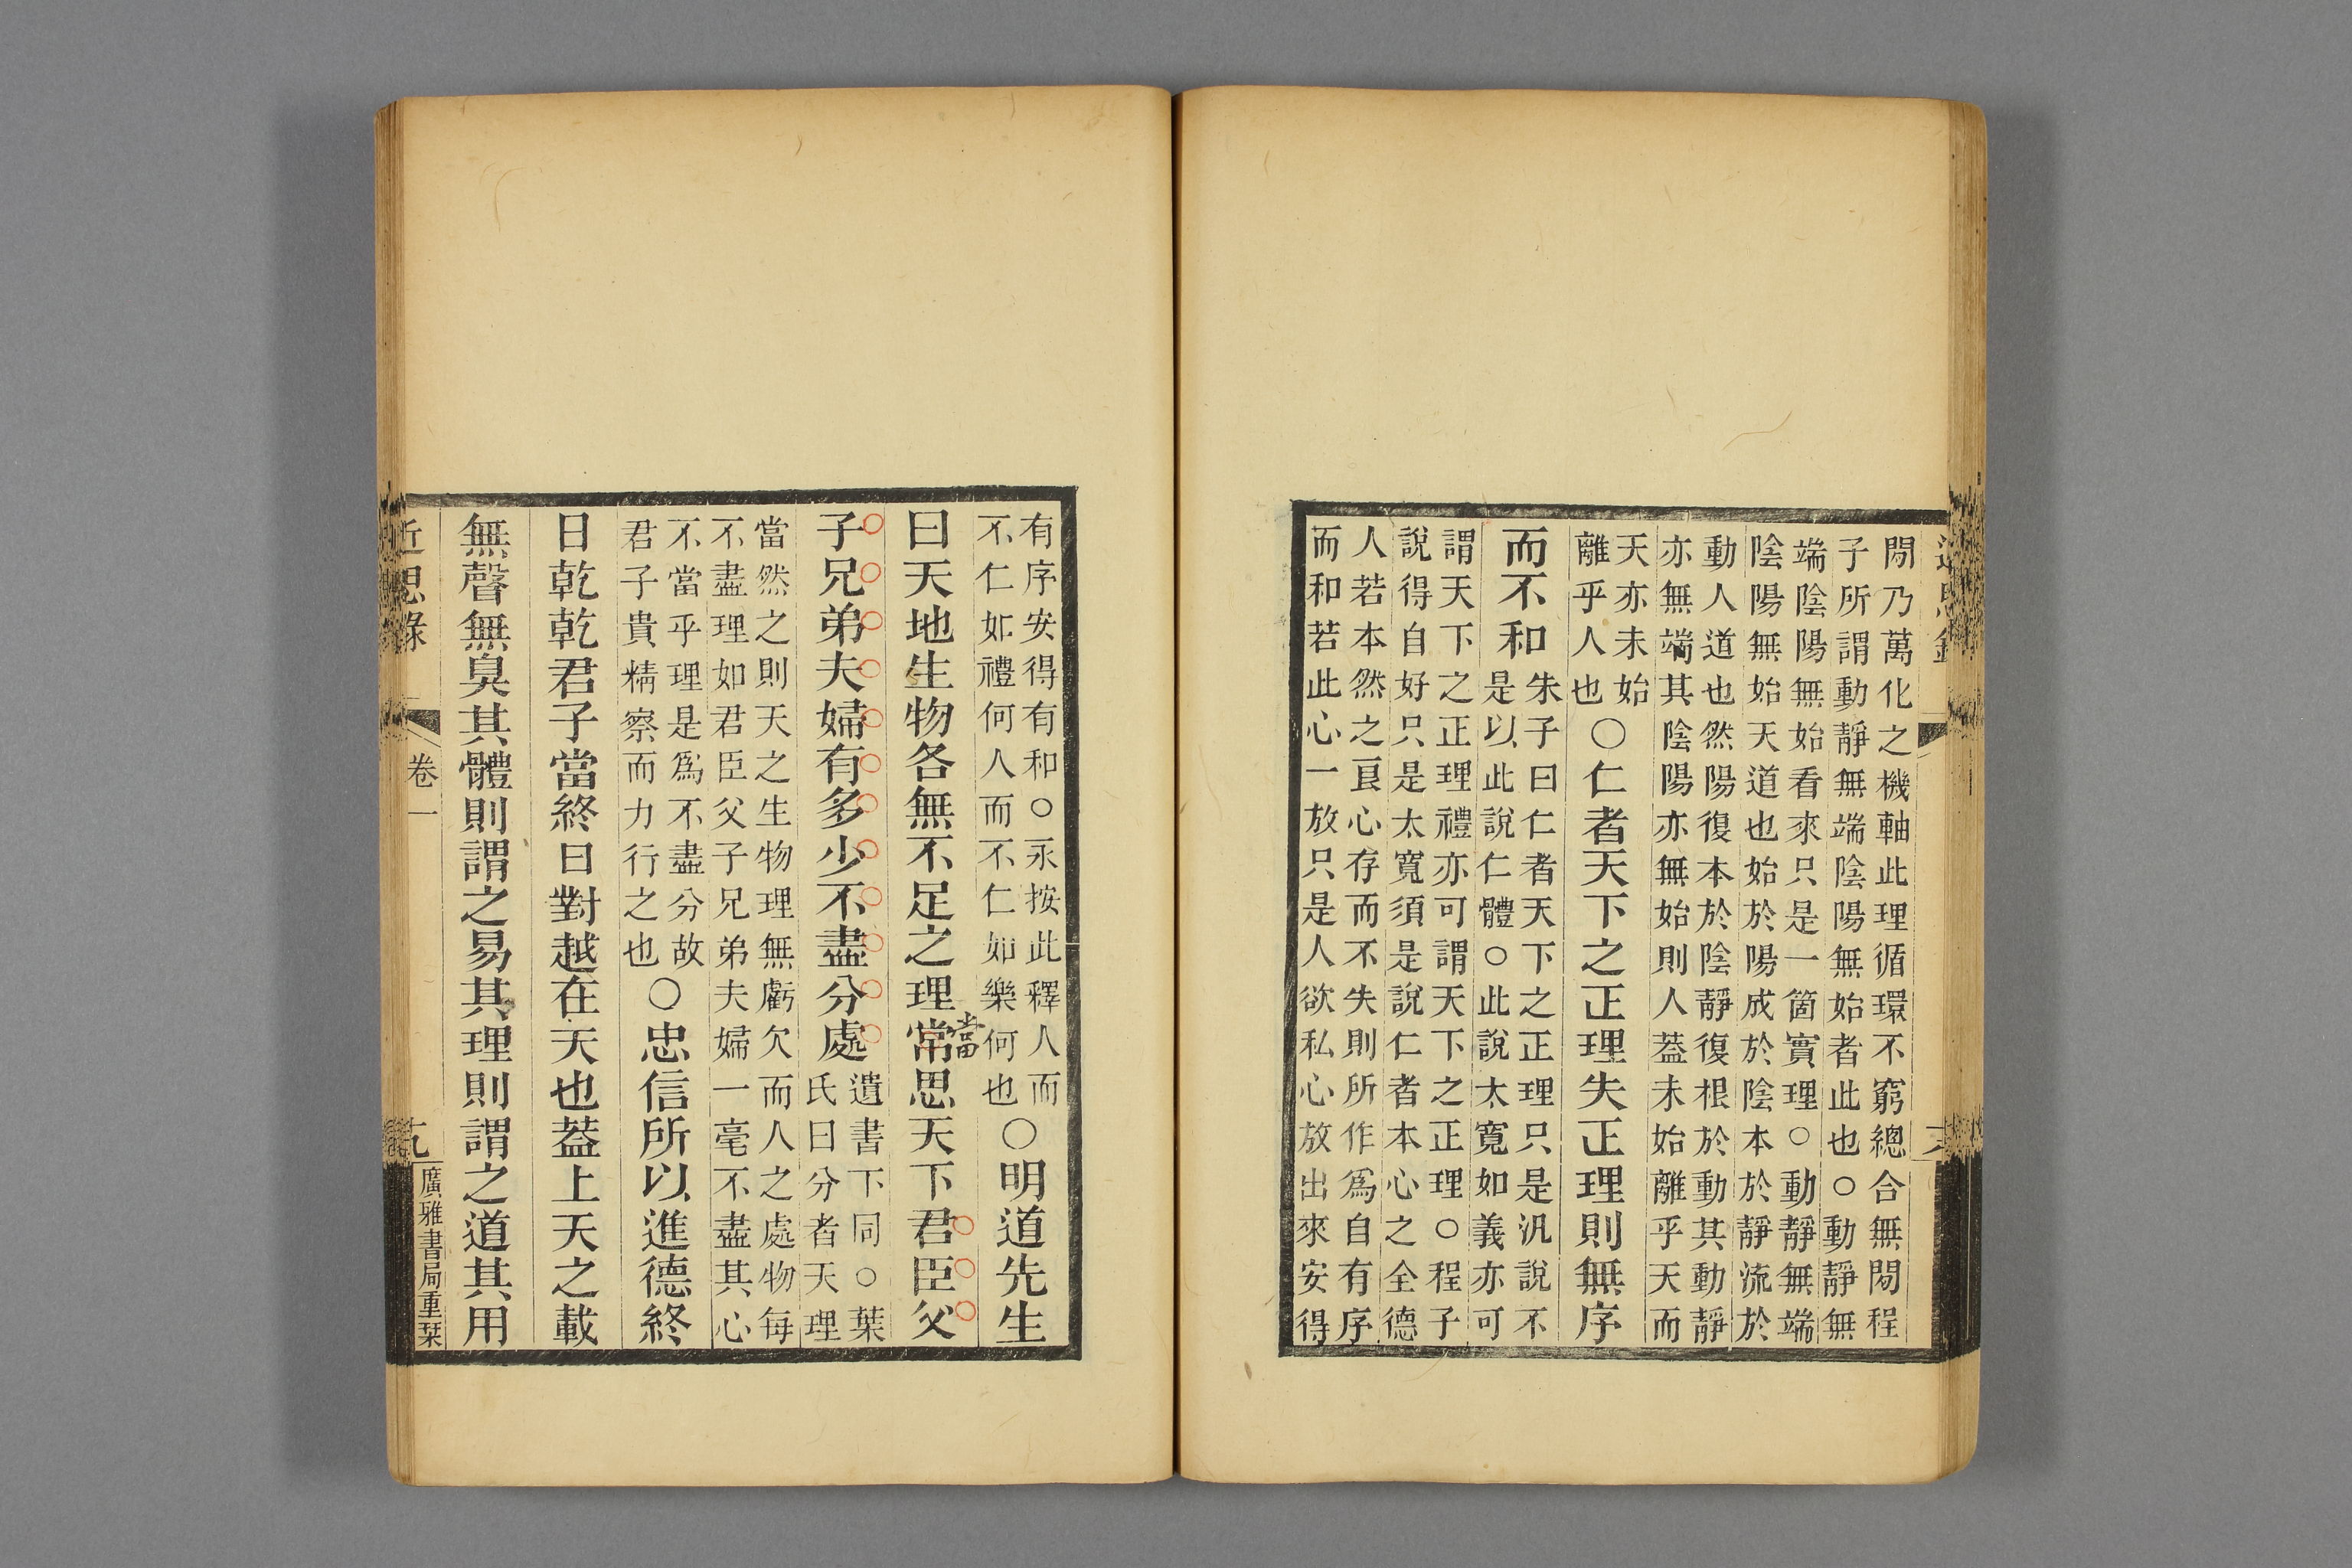 閒乃萬化之機軸此理循環不窮總合無閒程
子所謂動靜無端陰陽無始者此也○動靜無
端陰陽無始看來只是一箇實理○動靜無端
陰陽無始天道也始於陽成於陰本於靜流於
動人道也然陽復本於陰靜復根於動其動靜
亦無端其陰陽亦無始則人蓋未始離乎天而
天亦未始
離乎人也
○仁者天下之正理失正理則無序
而不和
朱子曰仁者天下之正理只是汎說不
是以此說仁體○此說太寬如義亦可
謂天下之正理禮亦可謂天下之正理○程子
說得自好只是太寬須是說仁者本心之全德
人若本然之良心存而不失則所作爲自有序
而和若此心一放只是人欲私心放出來安得
有序安得有和○永按此釋人而
不仁如禮何人而不仁如樂何也
○明道先生
曰天地生物各無不足之理常思天下君臣父
當
子兄弟夫婦有多少不盡分處
遺書下同○葉
氏曰分者天理
當然之則天之生物理無虧欠而人之處物每
不盡理如君臣父子兄弟夫婦一毫不盡其心
不當乎理是爲不盡分故
君子貴精察而力行之也
○忠信所以進德終
日乾乾君子當終日對越在天也蓋上天之載
無聲無臭其體則謂之易其理則謂之道其用
近思錄
卷一
九
廣雅書局重栞